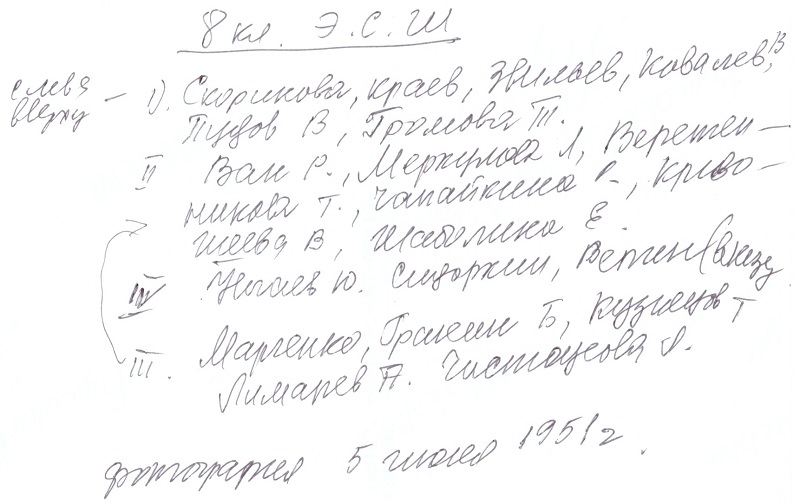 8 кл. Э.С.Ш
слева вверху – I). Скорикова, Краев, Звильев, Ковалев В,
Пудов В, Громова Т.
II Ван Р., Меркулова Л, Веретен–
никова Т., Чапайкина Р., Криво–
шеева В, Шаболина Е.
IV Ногаев Ю. Сидоркин, Ветен (внизу
III. Марченко, Гранин Б, Кузнецов Т
Лимарев П. Чистоусова Л.
фотография 5 июня 1951 г.